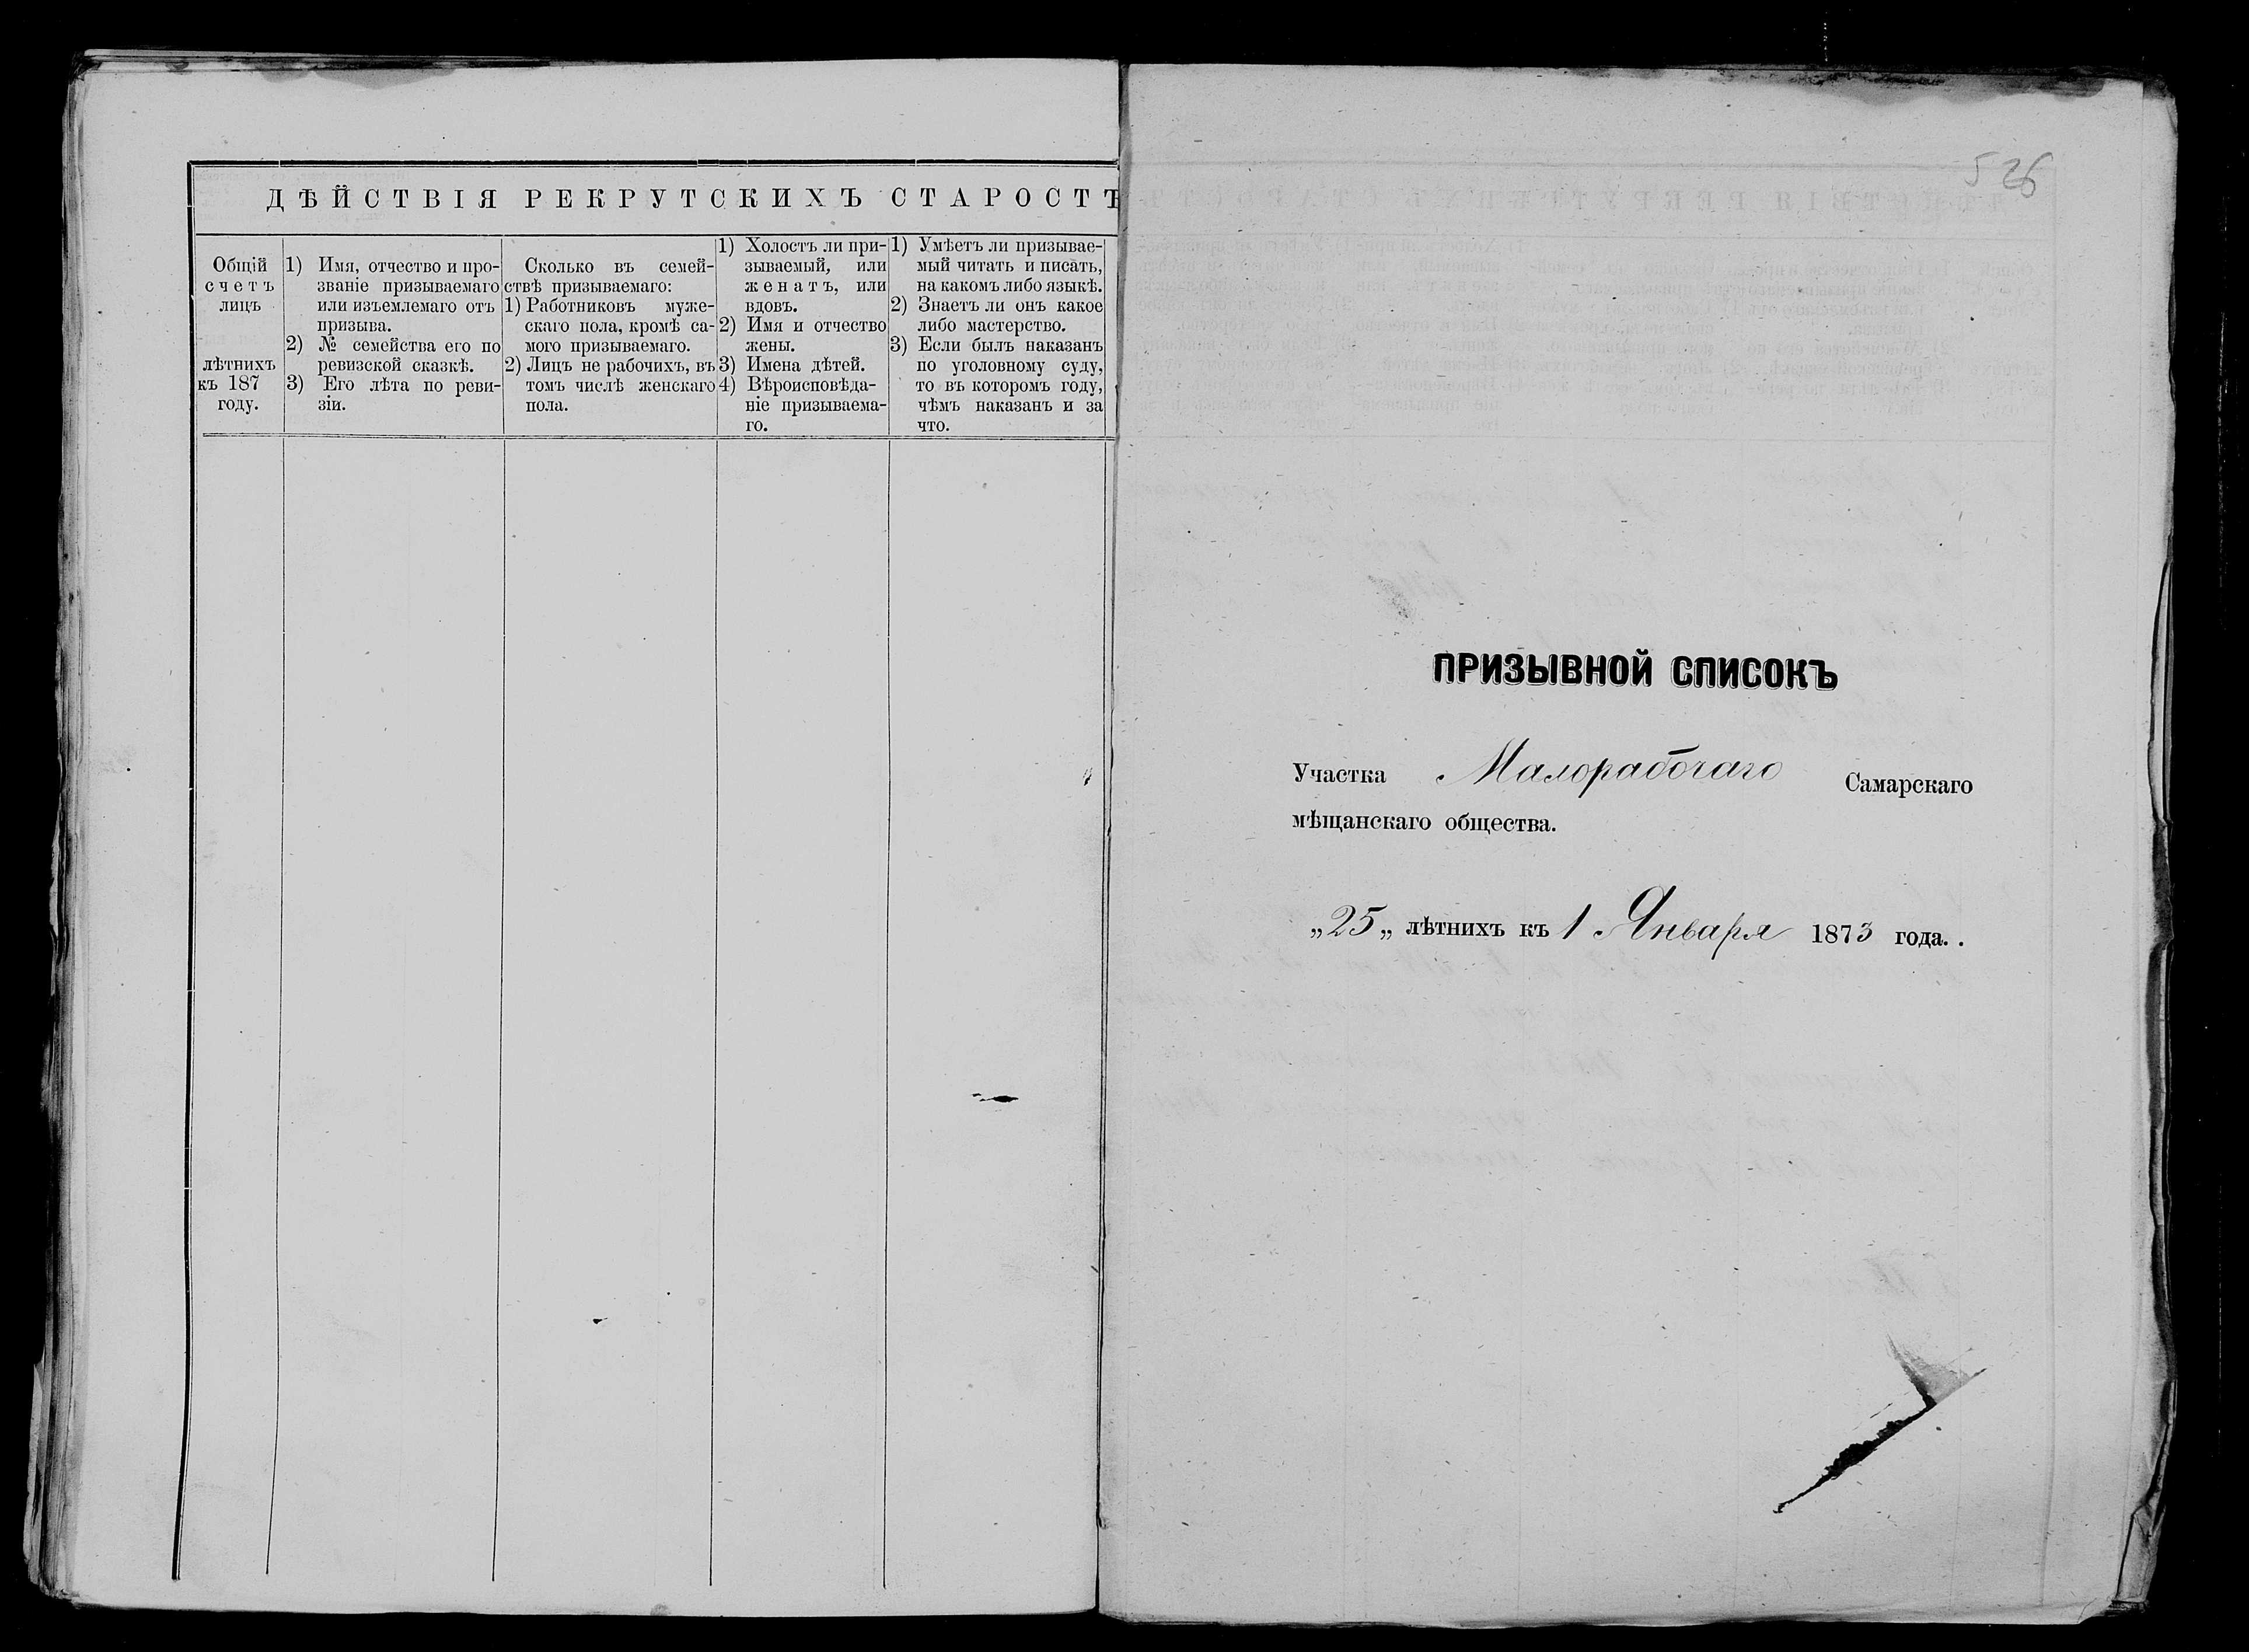 ДѢЙСТВІЯ РЕКРУТСКИХЪ СТАРОСТЪ
Общій
счетъ
лицъ
лѣтнихъ
къ 187
году.
1) Имя, отчество и про-
званіе призываемаго
или изъемлемаго отъ
призыва.
2) № семейства его по
ревизской сказкѣ.
3) Его лѣта по реви-
зіи.
Сколько въ семей-
ствѣ призываемаго:
1) Работниковъ муже-
скаго пола, кромѣ са-
мого призываемаго.
2) Лицъ не рабочихъ, въ
томъ числѣ женскаго
пола.
1) Холостъ ли при-
зываемый, или
женатъ, или
вдовъ.
2) Имя и отчество
жены.
3) Имена дѣтей.
4) Вѣроисповѣда-
ніе призываема-
го.
1) Умѣетъ ли призывае-
мый читать и писать,
на какомъ либо языкѣ.
2) Знаетъ ли онъ какое
либо мастерство.
3) Если былъ наказанъ
по уголовному суду,
то въ которомъ году,
чѣмъ наказанъ и за
что.
526
ПРИЗЫВНОЙ СПИСОКЪ
Участка Малорабочаго Самарскаго
мѣщанскаго общества.
„25„ лѣтнихъ къ 1 Января 1873 года.